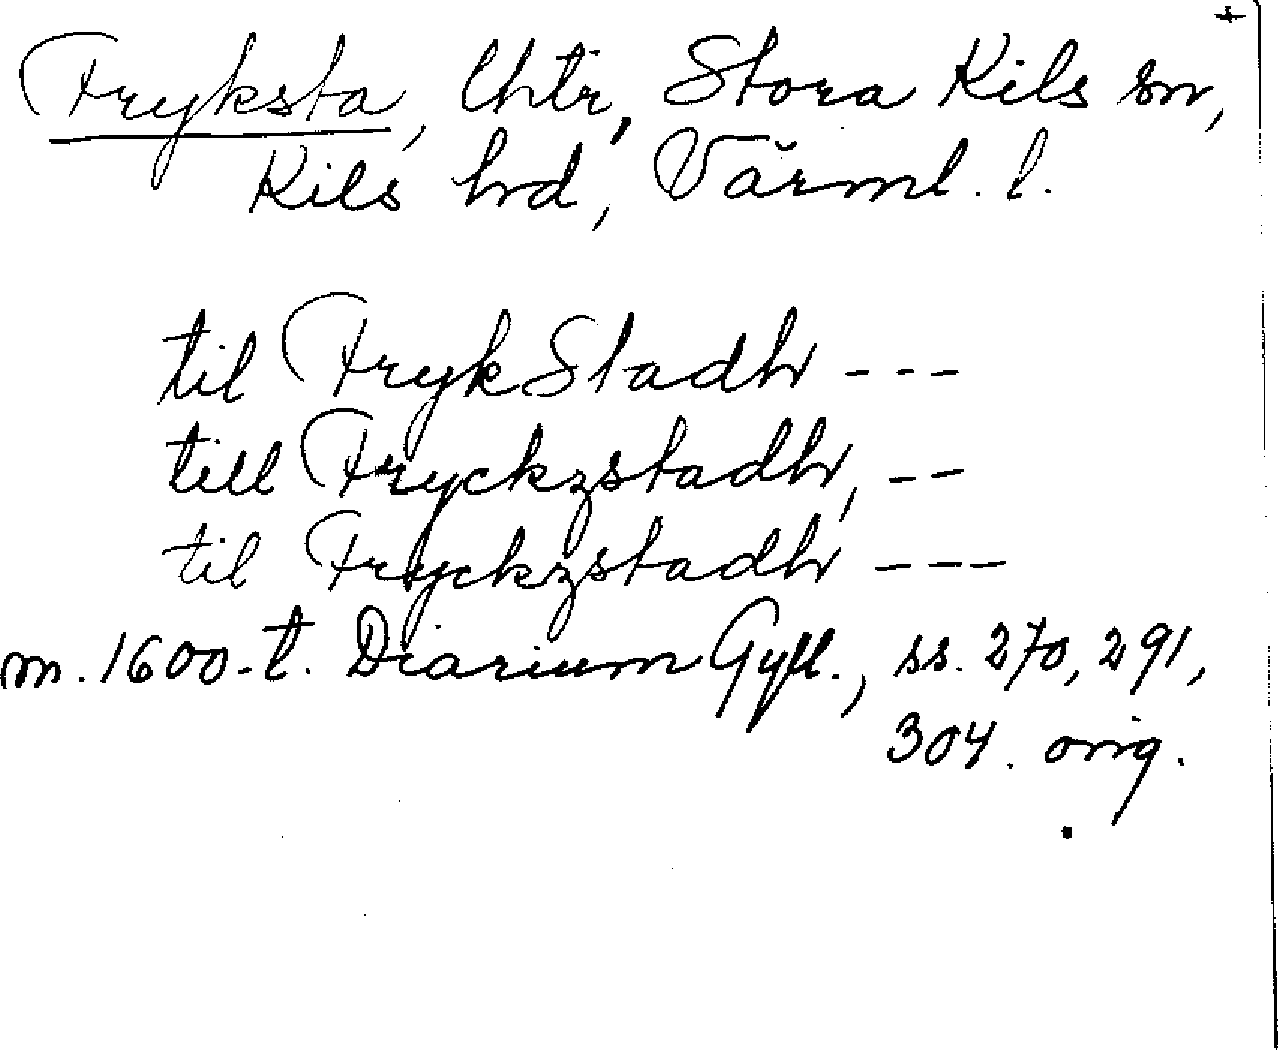 +
Fryksta, Chtr, Stora Kils sn,
Kils hd, Värml. l.
til FrykStadh ---
till Fryckzstadh, --
til Fryckzstadh ---
m. 1600-t. Diarium Gyll., ss. 270, 291,
304. orig.